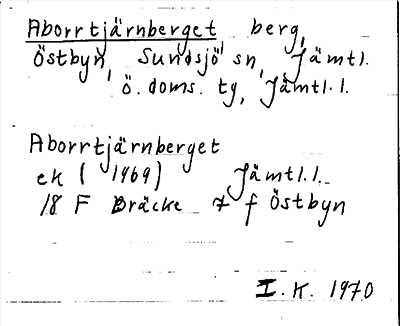 Aborrtjärnberget berg,
Östbyn, Sundsjö sn, Jämtl.
ö. doms. tg, Jämtl. l.
Aborrtjärnberget
ek (1969) Jämtl. l.
18 F Bräcke 7 f Östbyn
I. K. 1970